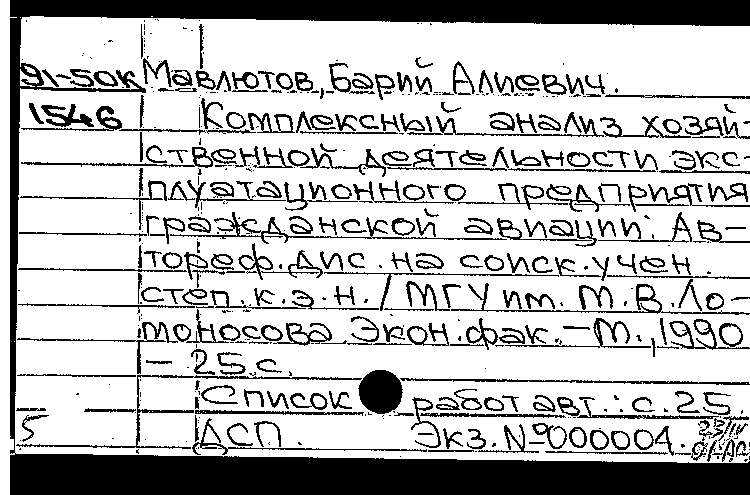 91-50к Мавлютов, Барий Алиевич.
1546 Комплексный анализ хозяй-
ственной деятельности экс-
плуатационного предприятия
гражданской авиации: Ав-
тореф. дис. на соиск. учен.
степ. к.э.н. / МГУ им. М.В. Ло-
моносова. Экон. фак. – М., 1990
– 25 с.
Список работ авт.: с. 25.
5 ДСП. Экз. № 000004. 23/IV